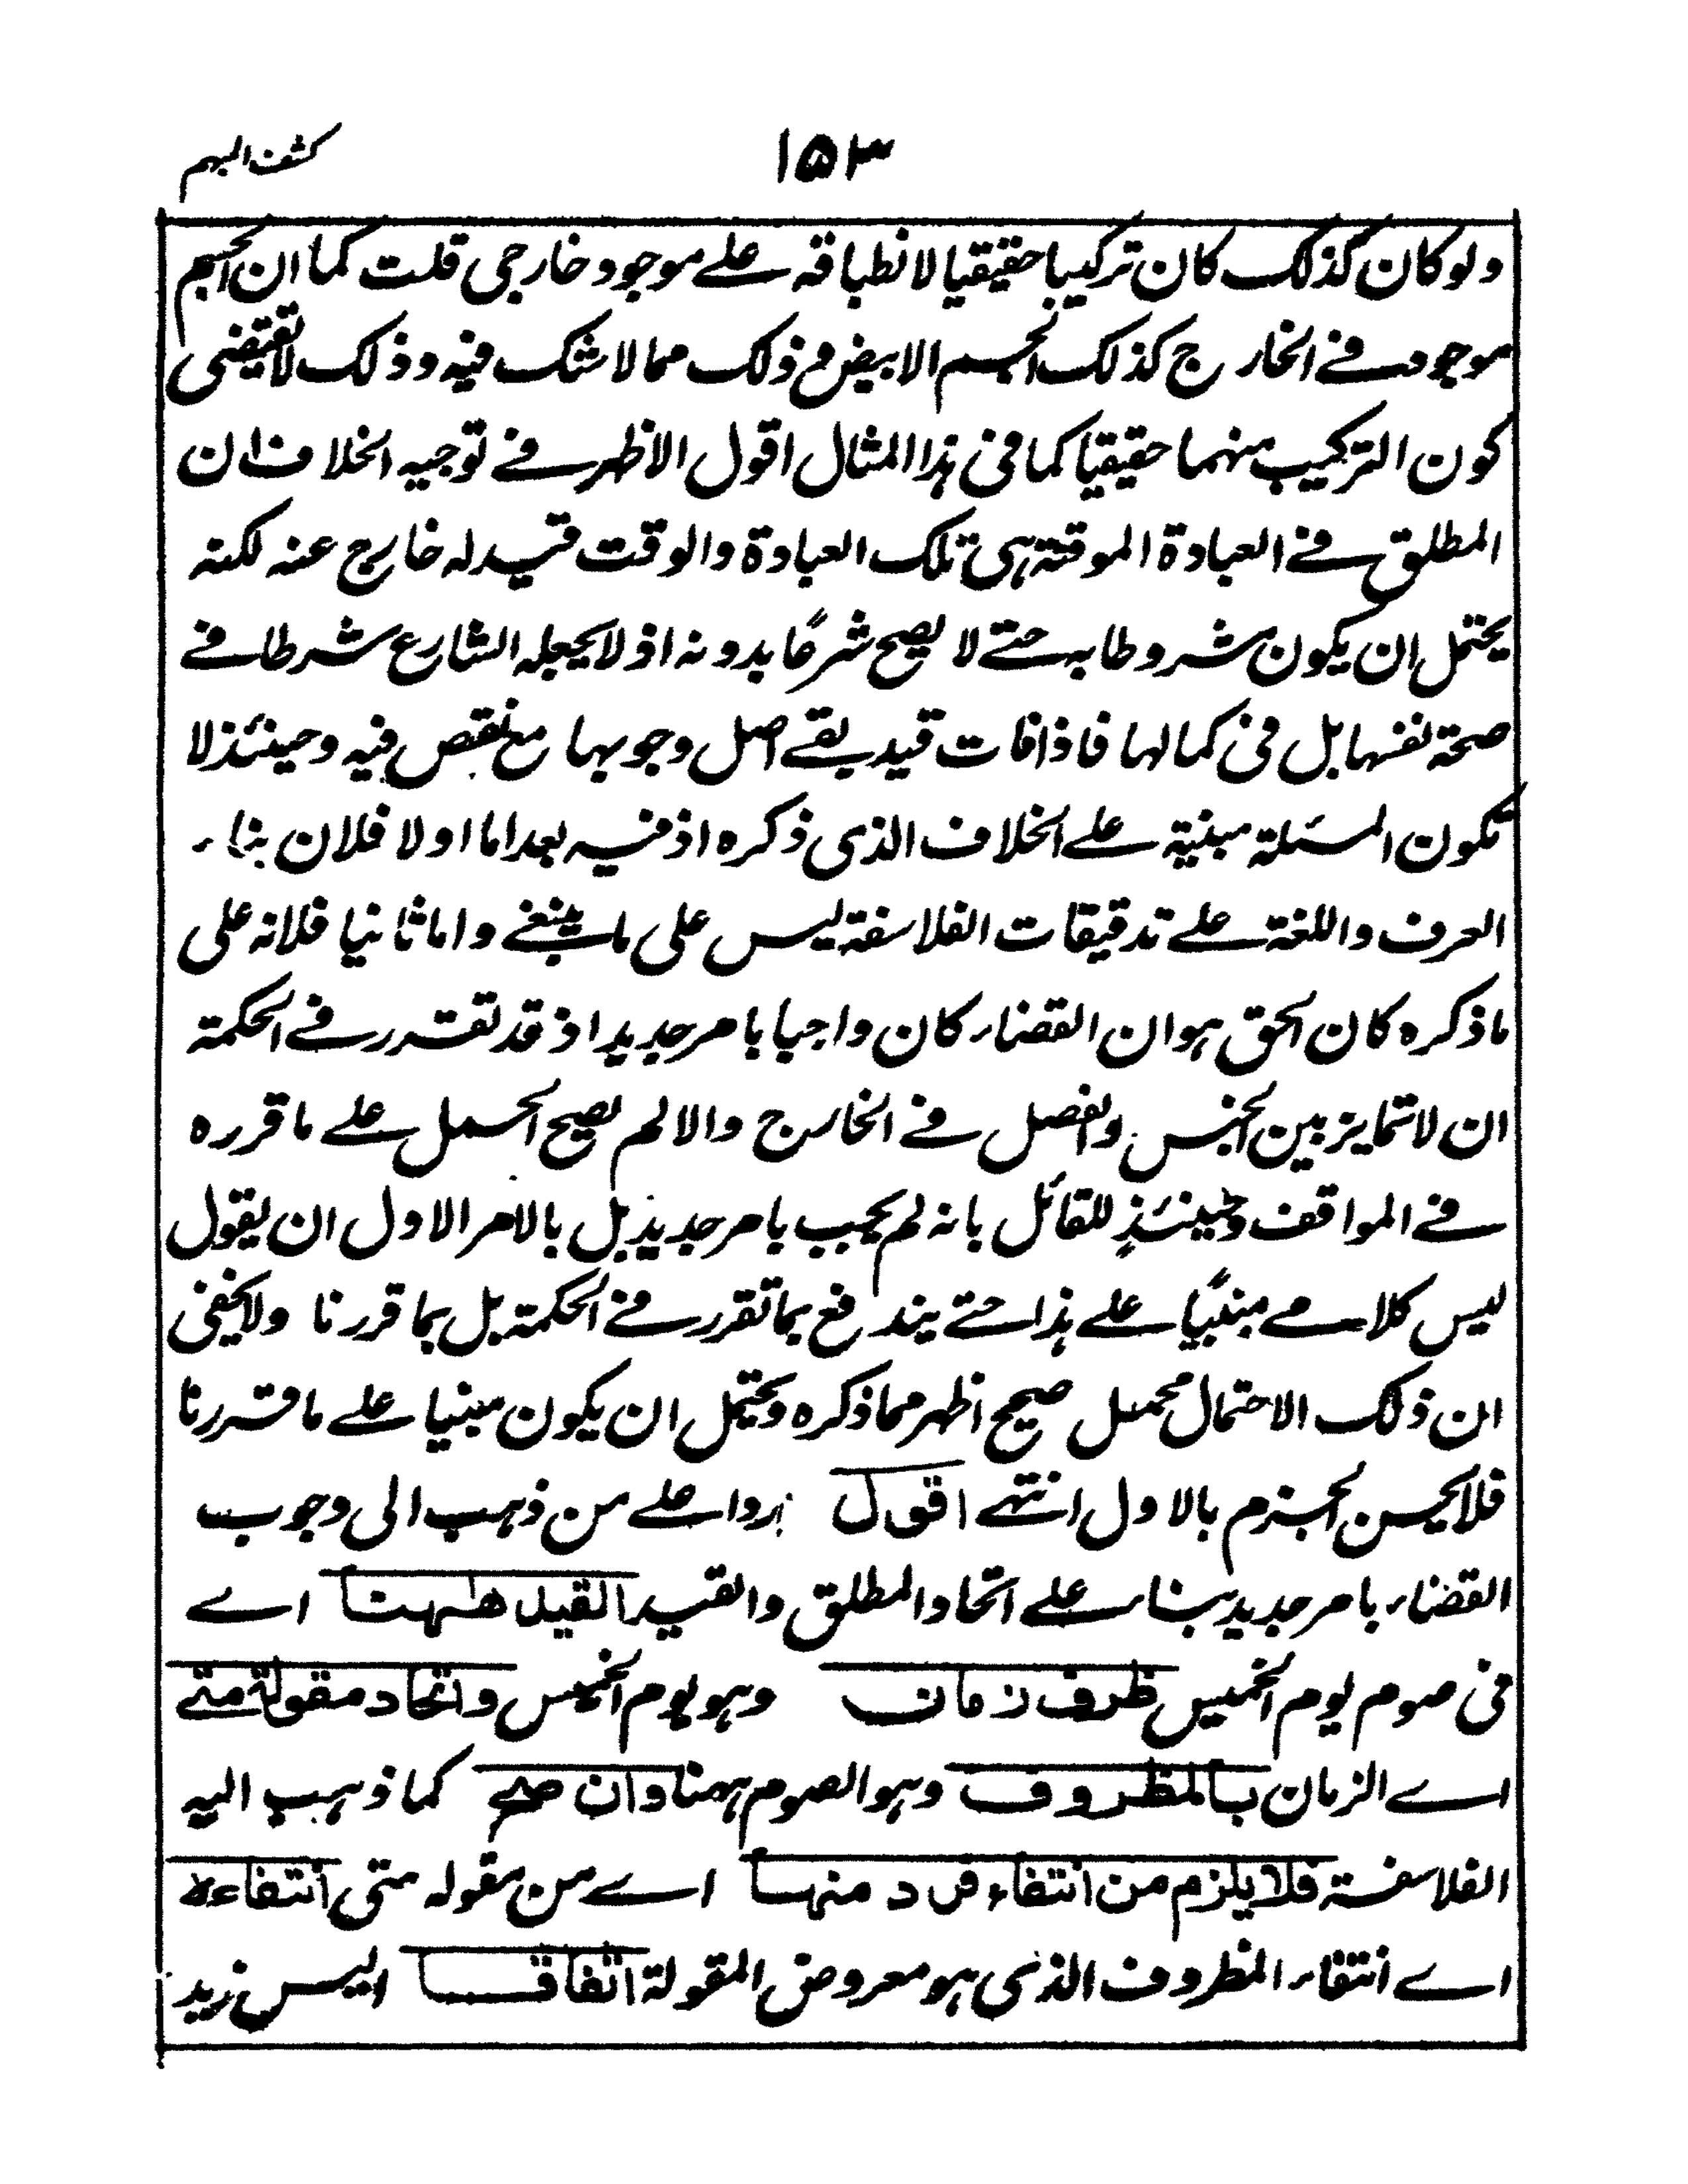 كشف المبهم
١٥٣
ولو كان كذلك كان تركيبا حقيقيا لانطباقه على موجود خارجى قلت كما ان الجسم
موجود فى الخارج كذلك الجسم الابيض وذلك مما لا شك فيه وذلك لا تقتضى
كون التركيب منهما حقيقيا كما فى هذا المثال اقول الاظهر فى توجيه الخلاف ان
المطلق فى العبادة الموقتة هى تلك العبادة والوقت قيد له خارج عنه لكنه
يحتمل ان يكون مشروطا به حتى لا يصح شرعًا بدونه اذ لا يجعله الشارع شرطا فى
صحة نفسها بل فى كمالها فاذا فات قيد بقى اصل وجوبها مع نقص فيه وحينئذ لا
تكون المسئلة مبنية على الخلاف الذى ذكره اذ فيه بعد اما اولا فلان بناء
العرف واللغة على تدقيقات الفلاسفة ليس على ما ينبغى واما ثانيا فلانه على
ما ذكره كان الحق هو ان القضاء كان واجبا بامر جديد اذ قد تقرر فى الحكمة
ان لا تمايز بين الجنس والفصل فى الخارج والا لم يصح الحمل على ما قرره
فى المواقف وحينئذٍ للقائل بانه لم يجب بامر جديد بل بالامر الاول ان يقول
ليس كلامى مبنيًا على هذا حتى يندفع بما تقرر فى الحكمة بل بما قررنا ولا يخفى
ان ذلك الاحتمال محمل صحيح اظهر مما ذكره ويحتمل ان يكون مبنيا على ما قررنا
فلا يحسن الجزم بالاول انتهى اقول ردا على من ذهب الى وجوب
القضاء بامر جديد بناء على اتحاد المطلق والقيد القيد ههنا اى
فى صوم يوم الخميس ظرف زمان وهو يوم الخميس واتحاد مقولة متى
اى الزمان بالمظروف وهو الصوم ههنا وان صح كما ذهب اليه
الفلاسفة فلا يلزم من انتفاء فرد منها اى من مقوله متى انتفاءه
اى انتفاء المظروف الذى هو معروض المقولة اتفاقا اليس زيد